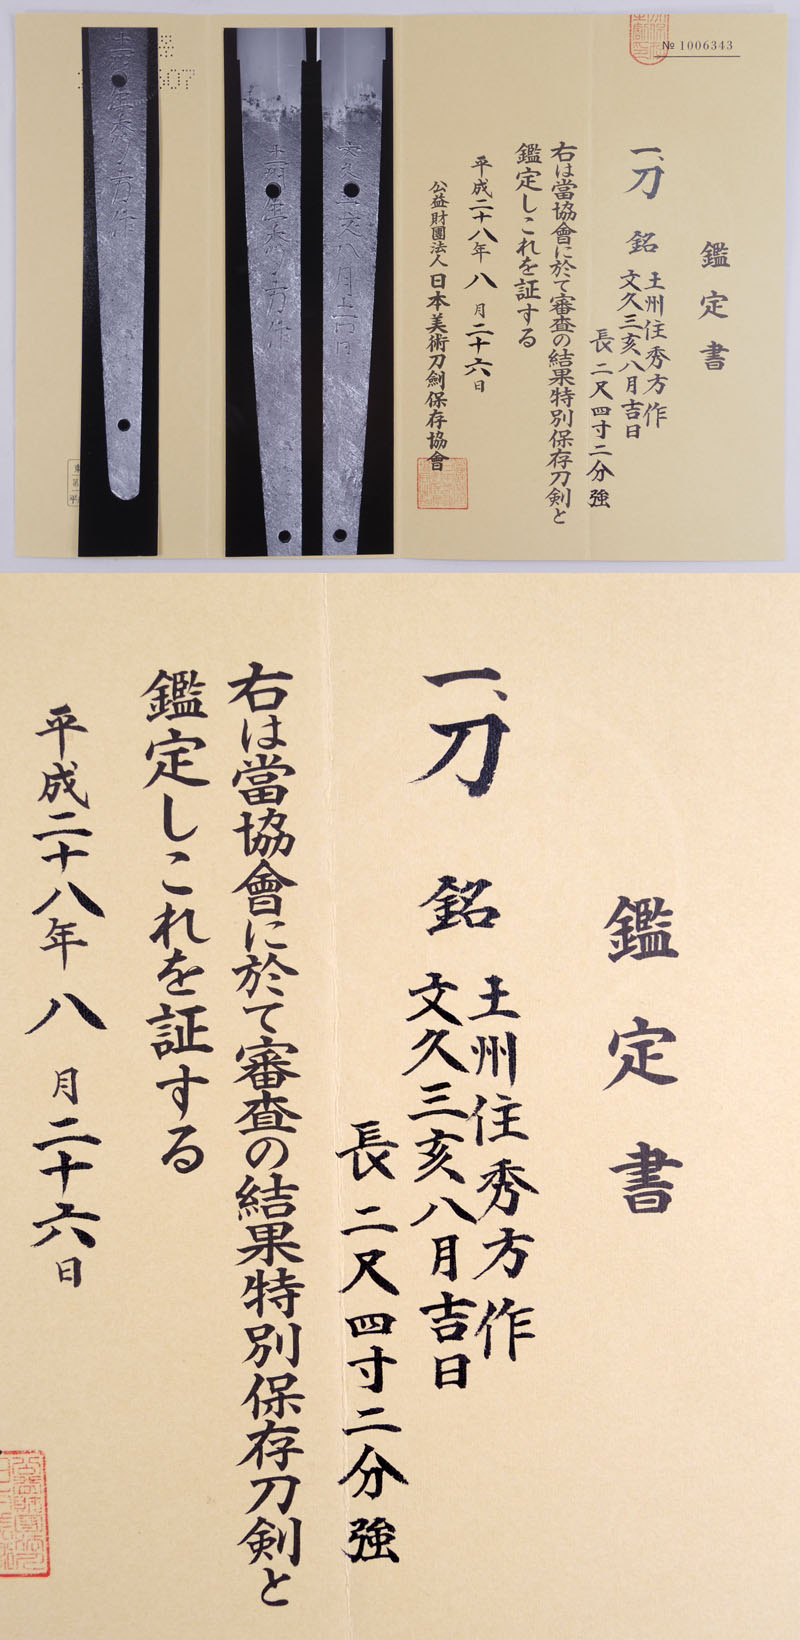 № 1006343
鑑定書
一、刀 銘 土州住秀方作
文久三亥八月吉日
長二尺四寸二分強
右は當協會に於て審査の結果特別保存刀剣と
鑑定しこれを証する
平成二十八年八月二十六日
公益財團法人日本美術刀劍保存協會
鑑定書
一、刀 銘 土州住秀方作
文久三亥八月吉日
長二尺四寸二分強
右は當協會に於て審査の結果特別保存刀剣と
鑑定しこれを証する
平成二十八年八月二十六日